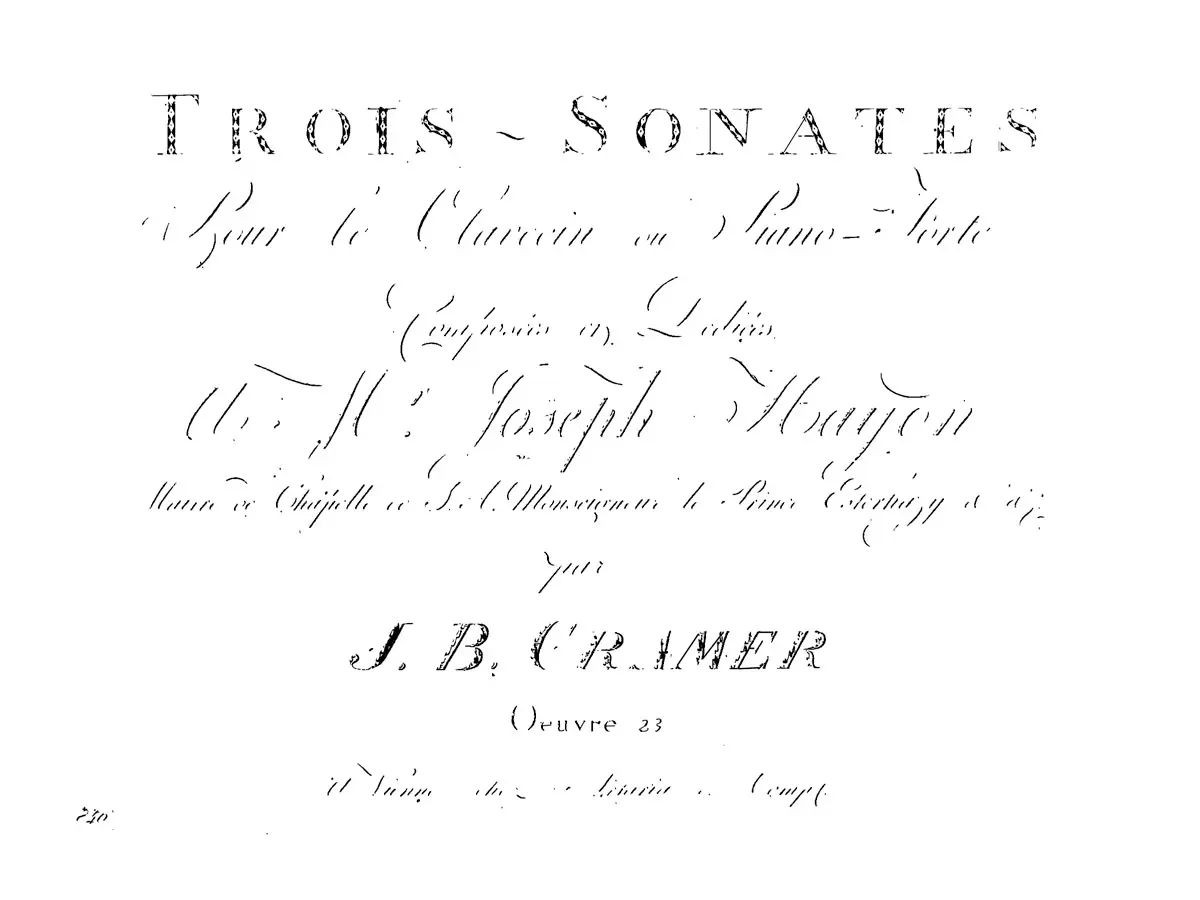 TROIS ~ SONATES
Pour le Clavecin ou Piano-Forte
Composées et Dediées
A Mr Joseph Haydn
Maitre de Chapelle de S. A. Monseigneur le Prince Esterhazy &
par
J. B. CRAMER
Oeuvre 23
A Vienne chez et Comp